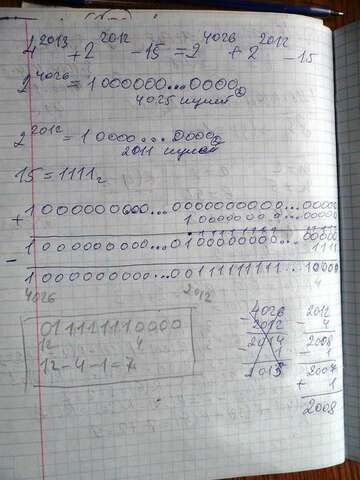 4^2013 + 2^2012 - 15 = 2^4026 + 2^2012 - 15
2^4026 = 1 000000...0000₂
4025 нулей
2^2012 = 1 0000...0000₂
2011 нулей
15 = 1111₂
+
1 0000000000...0000000000...00000
1 0000000...00000
1 000000000...01000000000...00000
-
1111
1 000000000...0011111111...10000
4026
2012
4
011111110000
12
4
12-4-1=7
4026
- 2012
2014
- 1
2013
2012
- 4
2008
- 1
2007
+ 1
2008